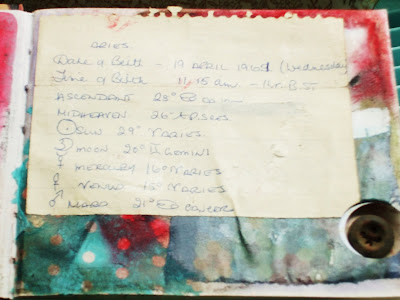 ARIES.
Date of Birth - 19 APRIL 1961 (Wednesday)
Time of Birth 11.15 am - 1hr. B.ST
ASCENDANT 28° ♋
MIDHEAVEN 26°
☉ SUN 29° ♈ARIES.
☽ MOON 20° ♊ GEMINI
☿ MERCURY 16° ♈ARIES
♀ VENUS ♈ARIES
♂ MARS 21° ♋ CANCER